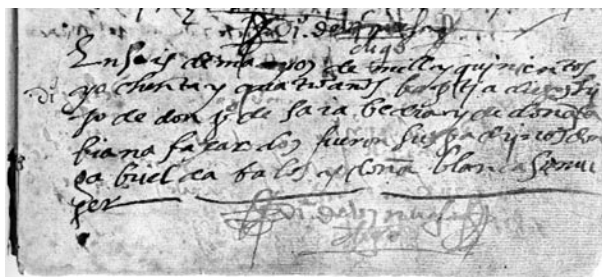 En seis de mayo de mill y quinientos
y ochenta y quatro años baptize a diego hi
jo de don pº de saiabedra y de doña fa
biana faxardo fueron sus padrinos don
gabriel dabalos y doña blanca su mu
ger